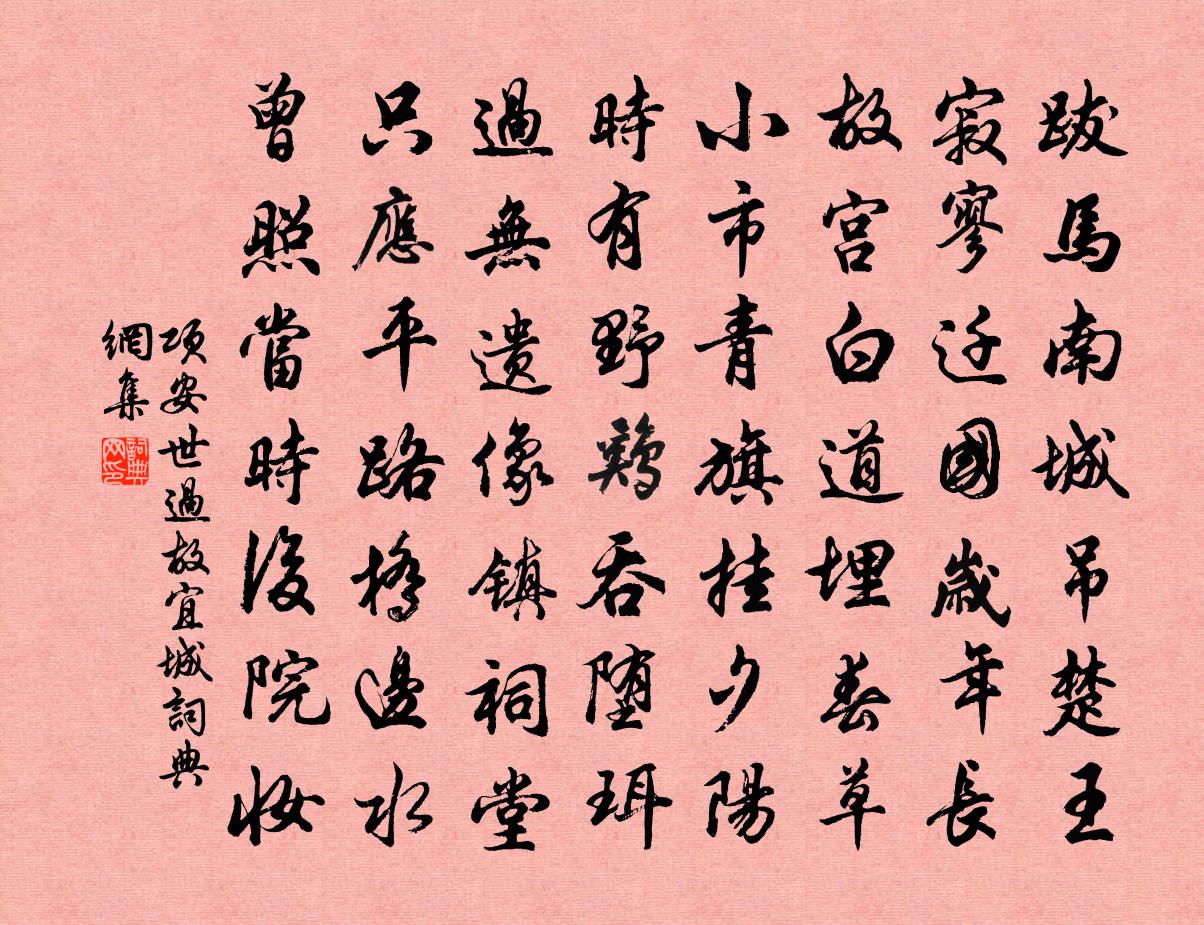 跋馬南城吊楚王
寂寥迁國歲年長
故宫白道埋春草
小市青旗挂夕陽
時有野鷄吞堕珥
過無遗像镇祠堂
只應平路橋邊水
曾照當時後院妝
項安世過故宜城詞典
網集
詞典网印